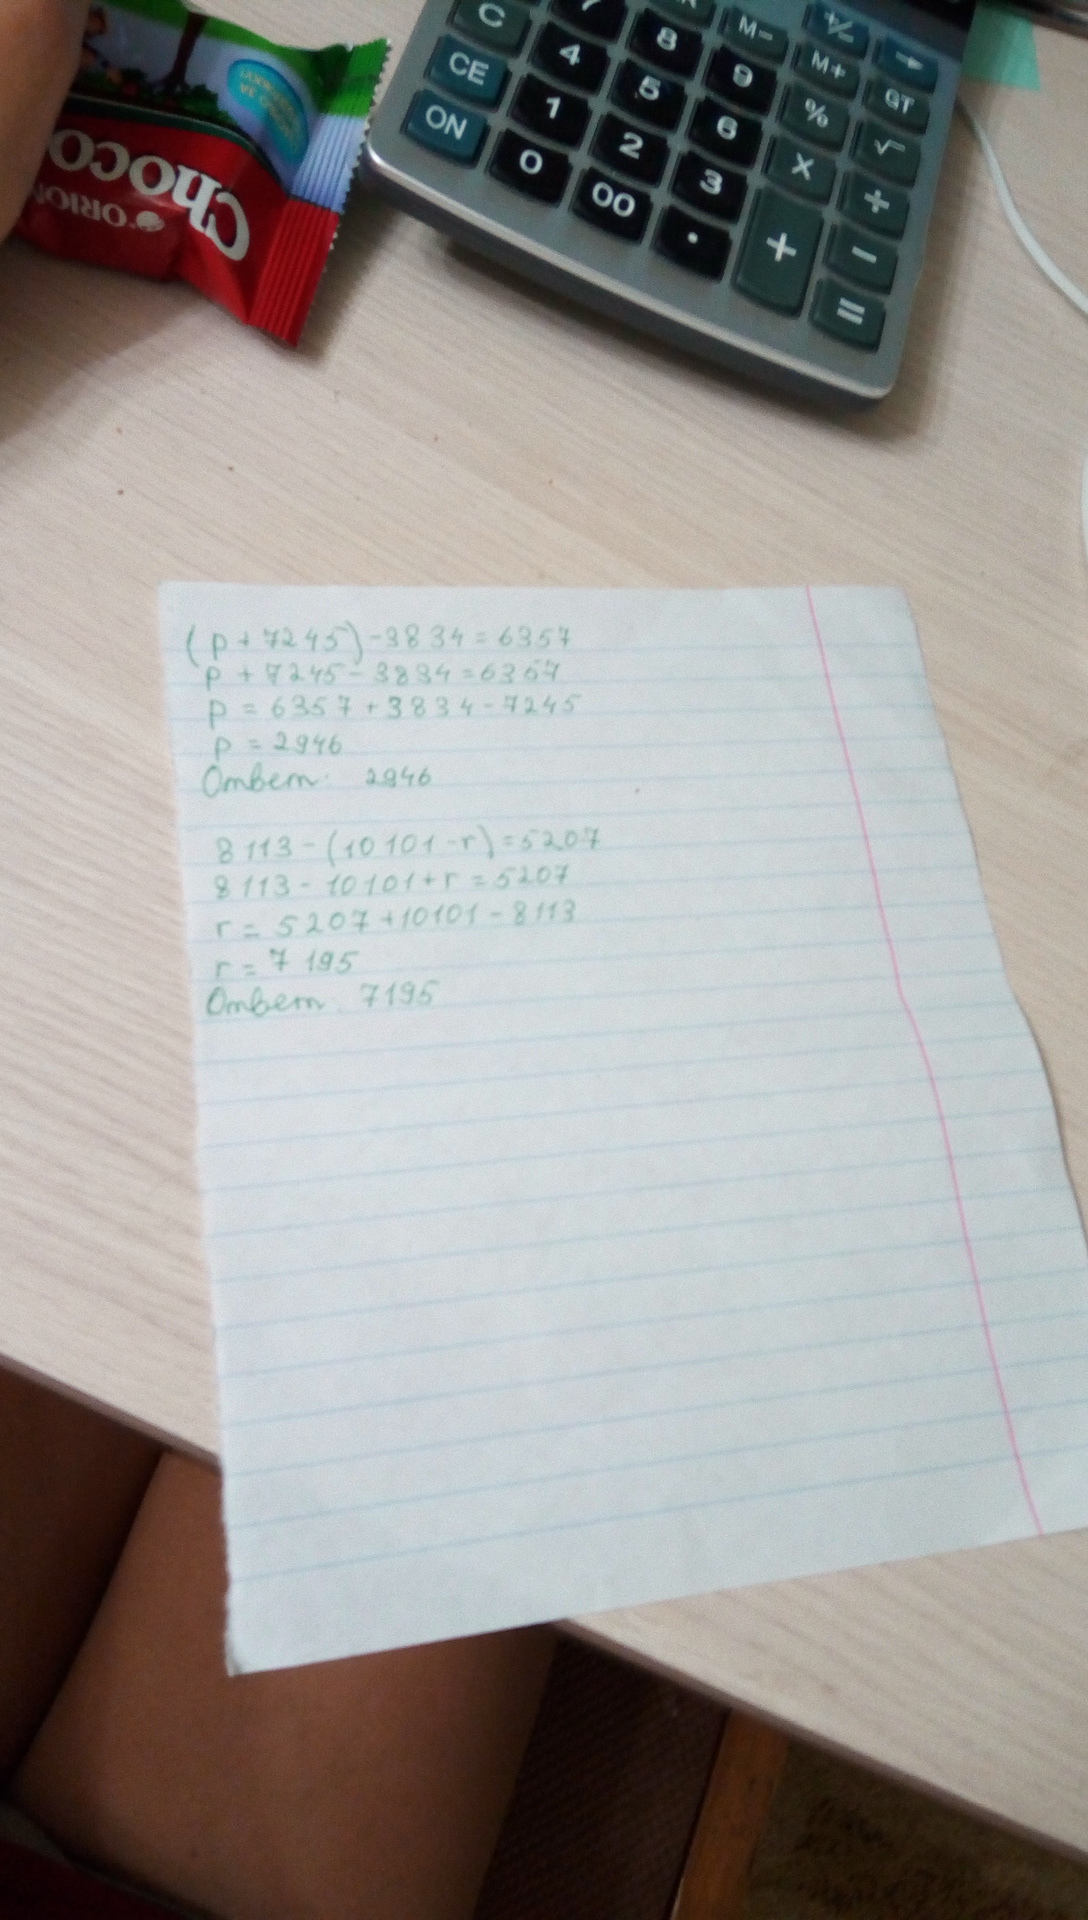 CHOCO
ORION
C
7
8
M-
+/-
CE
4
5
9
M+
GT
ON
1
2
6
%
√
0
00
3
X
÷
.
+
-
=
(p + 7245) - 3834 = 6357
p + 7245 - 3834 = 6357
p = 6357 + 3834 - 7245
p = 2946
Ответ: 2946
8113 - (10101 - r) = 5207
8113 - 10101 + r = 5207
r = 5207 + 10101 - 8113
r = 7195
Ответ. 7195